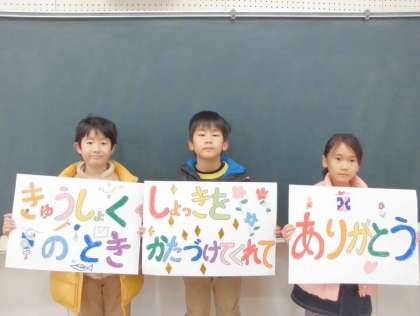 きゅうしょく
のとき
しょっきを
かたづけてくれて
ありがとう